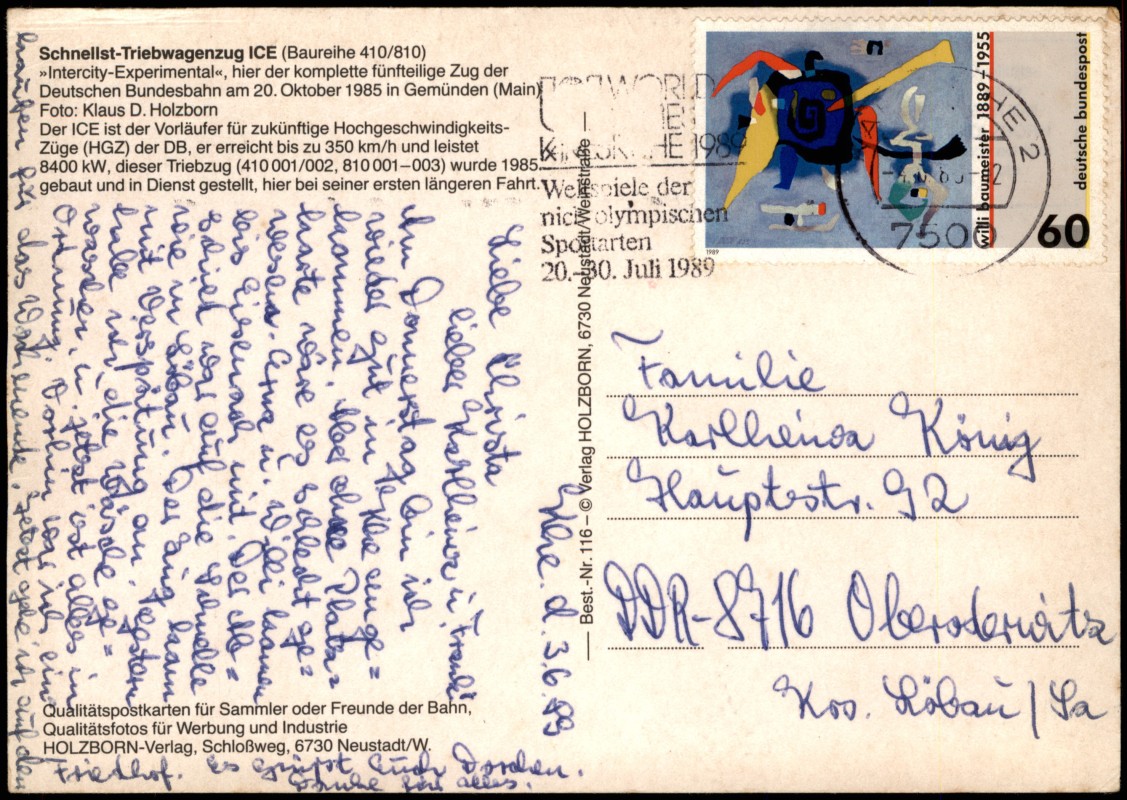 Schnellst-Triebwagenzug ICE (Baureihe 410/810)
»Intercity-Experimental«, hier der komplette fünfteilige Zug der
Deutschen Bundesbahn am 20. Oktober 1985 in Gemünden (Main)
Foto: Klaus D. Holzborn
Der ICE ist der Vorläufer für zukünftige Hochgeschwindigkeits-
Züge (HGZ) der DB, er erreicht bis zu 350 km/h und leistet
8400 kW, dieser Triebzug (410 001/002, 810 001–003) wurde 1985
gebaut und in Dienst gestellt, hier bei seiner ersten längeren Fahrt.
Khe. d. 3.6.89
Liebe Christa
lieber Karlheinz u. Frank!
Am Donnerstag bin ich
wieder gut in Khe ange=
kommen. Aber ohne Platz=
karte wäre es schlecht ge=
wesen. Erna u. Willi kamen
bis Eisenach mit. Der Ab=
schied war auf die Schnelle
wie in Löbau. Der Zug kam
mit Verspätung an. Gestern
habe ich die Wäsche ge=
waschen u. jetzt ist alles in
Ordnung. Vorhin war ich ein=
kaufen für das Wochenende. Jetzt gehe ich auf den
Friedhof. Es grüßt Euch Dorchen.
Danke für alles.
Qualitätspostkarten für Sammler oder Freunde der Bahn,
Qualitätsfotos für Werbung und Industrie
HOLZBORN-Verlag, Schloßweg, 6730 Neustadt/W.
Best.-Nr. 116 – © Verlag HOLZBORN, 6730 Neustadt/Weinstraße
WORLD
KARLSRUHE 1989
Weltspiele der
nicht olympischen
Sportarten
20.–30. Juli 1989
HE 2
7500
willi baumeister 1889–1955
deutsche bundespost
60
1989
Familie
Karlheinz König
Hauptstr. 92
DDR-8716 Oberoderwitz
Krs. Löbau/Sa